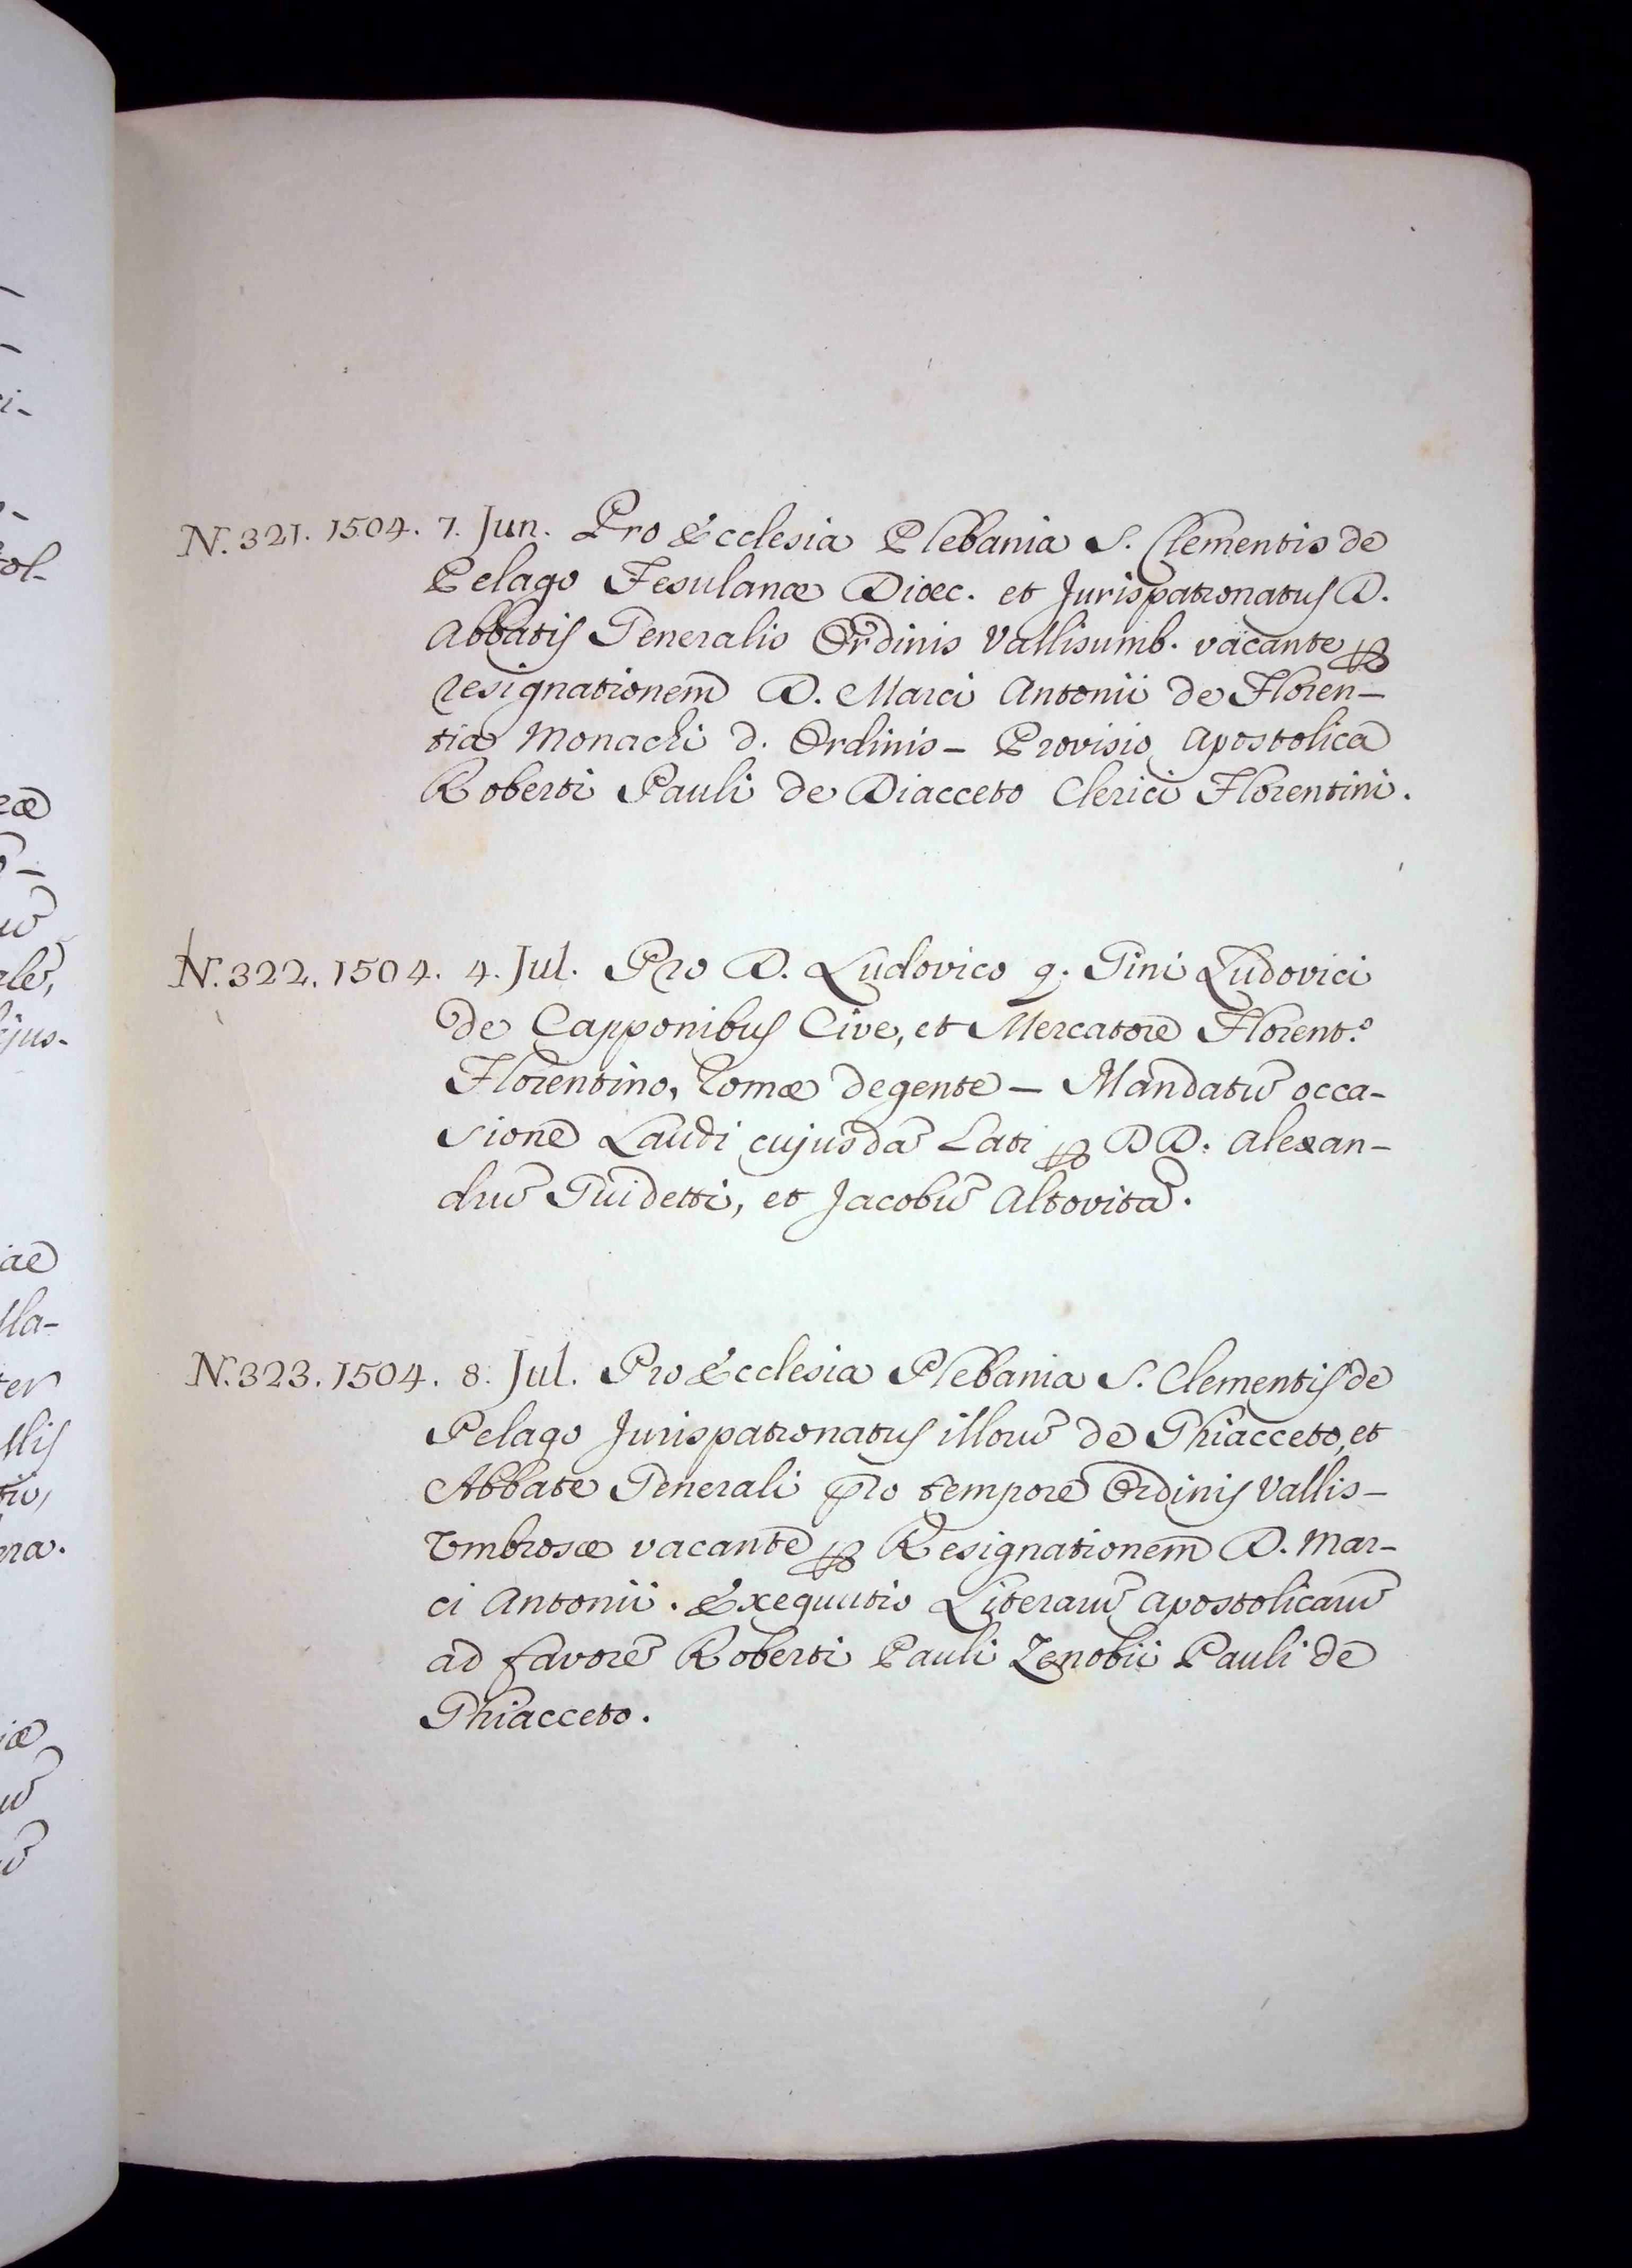 N. 321. 1504. 7. Jun. Pro Ecclesia Plebania S. Clementis de
Pelago Fesulanæ Diœc. et Jurispatronatus D.
Abbatis Generalis Ordinis Vallisumb. vacante ꝑ
resignationem D. Marci Antonii de Floren-
tia Monachi d. Ordinis - Provisio Apostolica
Roberti Pauli de Diacceto Clerici Florentini.
N. 322. 1504. 4. Jul. Pro D. Ludovico q. Gini Ludovici
de Capponibus Cive, et Mercatore Florent.º
Florentino, Romæ degente - Mandatū occa-
sione Laudi cujusdā Lati ꝑ DD. Alexan-
drū Guidetti, et Jacobū Altovitā.
N. 323. 1504. 8. Jul. Pro Ecclesia Plebania S. Clementis de
Pelago Jurispatronatus illorū de Ghiacceto, et
Abbate Generali pro tempore Ordinis Vallis-
Umbrosæ vacante ꝑ Resignationem D. Mar-
ci Antonii. Exequutio Literarū Apostolicarū
ad favorē Roberti Pauli Zenobii Pauli de
Ghiacceto.